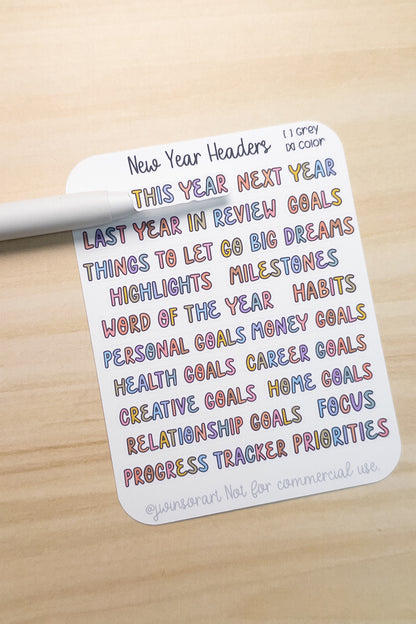 New Year Headers
[ ] Grey
[X] Color
THIS YEAR NEXT YEAR
LAST YEAR IN REVIEW GOALS
THINGS TO LET GO BIG DREAMS
HIGHLIGHTS MILESTONES
WORD OF THE YEAR HABITS
PERSONAL GOALS MONEY GOALS
HEALTH GOALS CAREER GOALS
CREATIVE GOALS HOME GOALS
RELATIONSHIP GOALS FOCUS
PROGRESS TRACKER PRIORITIES
@jwinsorart Not for commercial use.